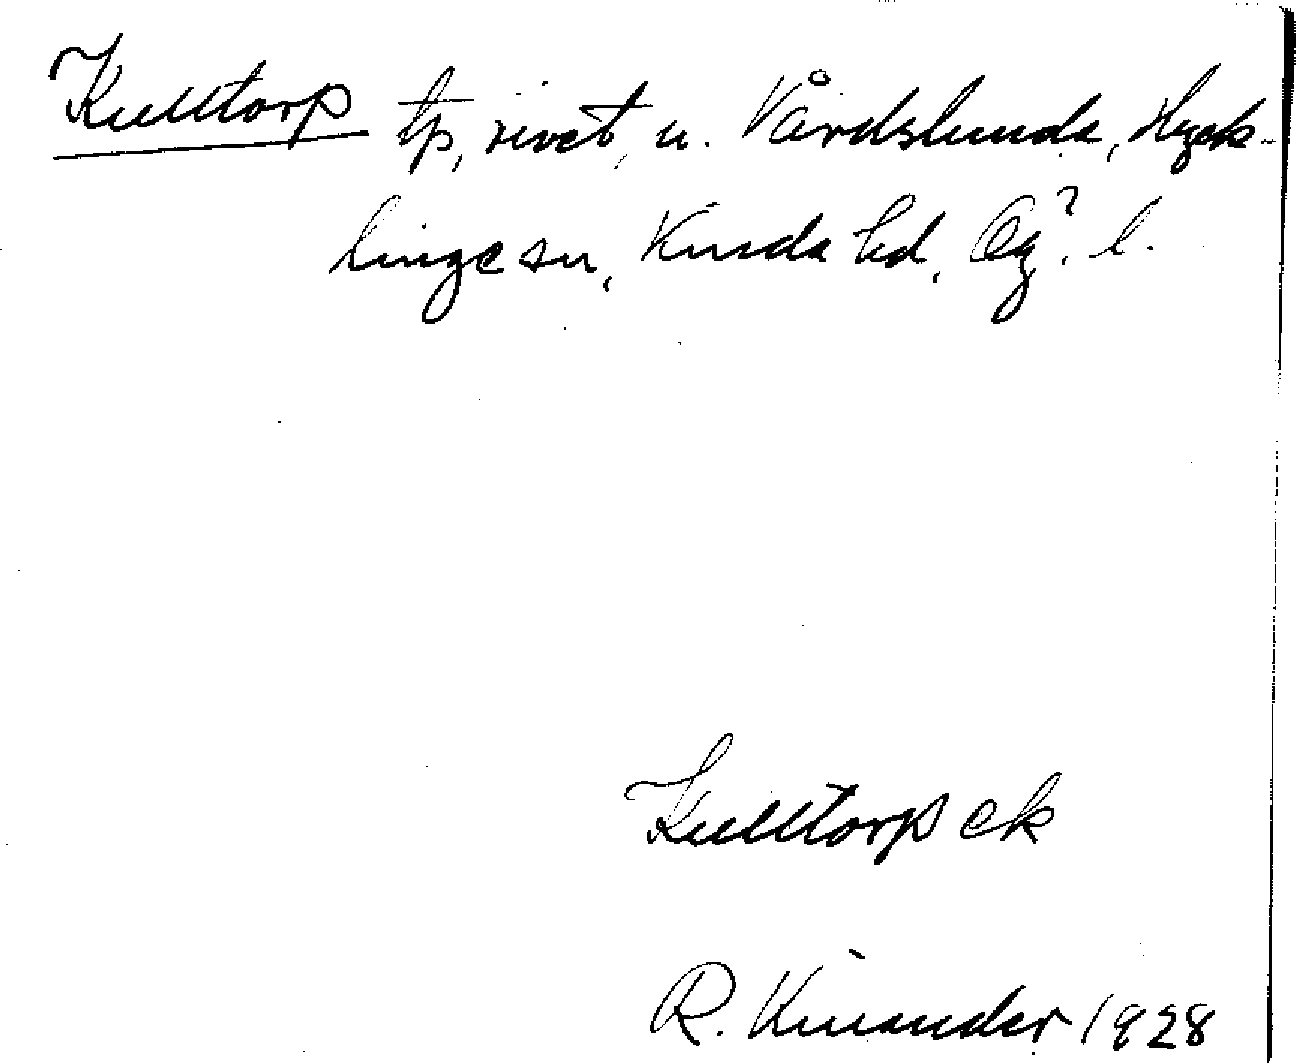 Kulltorp tp, rivet, u. Vårdslunda, Hyck-
linge sn, Kinda hd, Ög? l.
Kulltorp ek
R. Kinander 1928